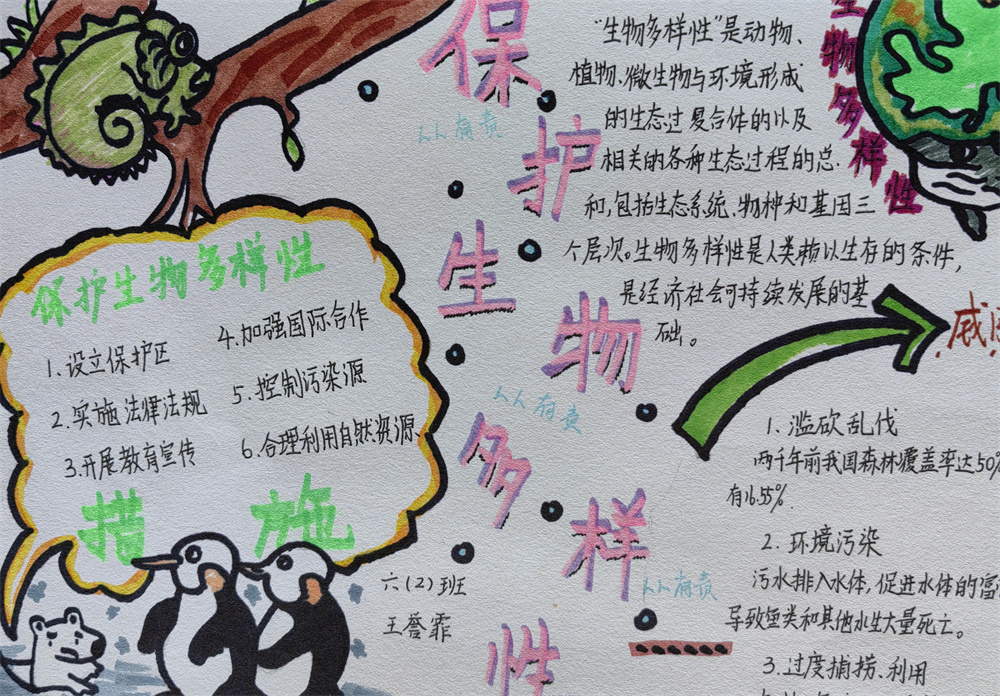 保护生物多样性
人人有责
人人有责
人人有责
保护生物多样性
1.设立保护区
2.实施法律法规
3.开展教育宣传
4.加强国际合作
5.控制污染源
6.合理利用自然资源、
措施
六(2)班
王誉霏
生物多样性
“生物多样性”是动物、
植物、微生物与环境形成
的生态过复合体的以及
相关的各种生态过程的总.
和,包括生态系统、物种和基因三
个层次。生物多样性是人类赖以生存的条件,
是经济社会可持续发展的基
础。
1.滥砍乱伐
两千年前我国森林覆盖率达50%
有16.55%.
2.环境污染
污水排入水体,促进水体的富
导致鱼类和其他水生大量死亡。
3.过度捕捞、利用